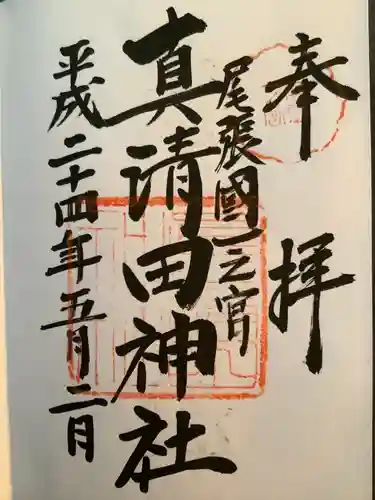 奉拝
尾張國一之宮
真清田神社
平成二十四年五月二月